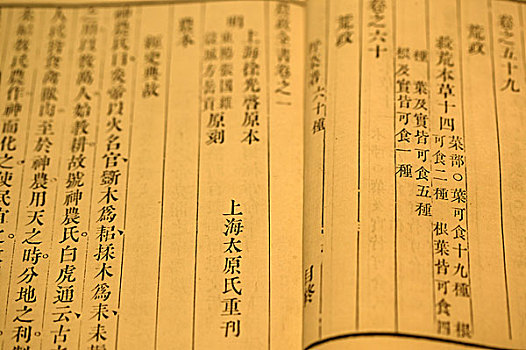 卷之五十九
荒政
救荒本草十四 菜部〇葉可食十九種 根
可食二種 根葉皆可食四
種 葉及實皆可食五種
根及實皆可食一種
卷之六十
荒政
六十種
農政全書卷之一
上海徐光啓原本
明
東陽張國維
穀城方岳貢 原刻
上海太原氏重刊
農本
經史典故
神農氏曰炎帝以火名官斲木爲耜揉木爲耒耒耨
之用以敎萬人始敎耕故號神農氏白虎通云古之
人民皆食禽獸肉至於神農用天之時分地之利制
耒耜敎民農作神而化之使民宜之